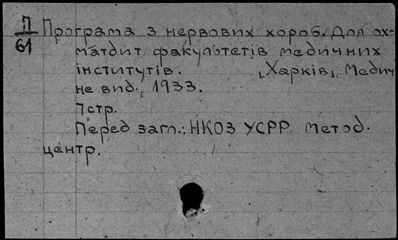 П
61
Програма з нервових хороб. Для ох-
матдит факультетів медичних
інститутів. [Харків], Медич
не вид., 1933.
7стр.
Перед загл.: НКОЗ УСРР. Метод.
центр.